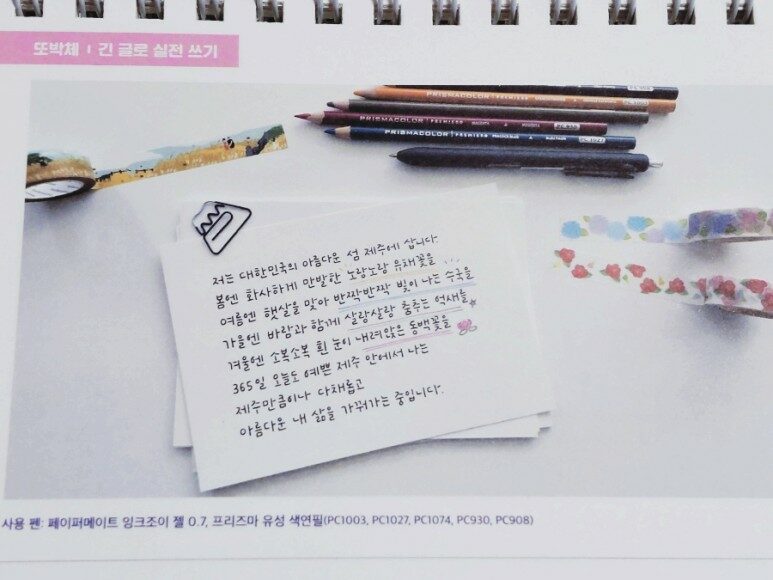 또박체 | 긴 글로 실전 쓰기
PRISMACOLOR PREMIER
PRISMACOLOR PREMIER
PRISMACOLOR PREMIER
저는 대한민국의 아름다운 섬 제주에 삽니다.
봄엔 화사하게 만발한 노랑노랑 유채꽃을
여름엔 햇살을 맞아 반짝반짝 빛이 나는 수국을
가을엔 바람과 함께 살랑살랑 춤추는 억새를
겨울엔 소복소복 흰 눈이 내려앉은 동백꽃을
365일 오늘도 예쁜 제주 안에서 나는
제주만큼이나 다채롭고
아름다운 내 삶을 가꿔가는 중입니다.
사용 펜: 페이퍼메이트 잉크조이 젤 0.7, 프리즈마 유성 색연필(PC1003, PC1027, PC1074, PC930, PC908)